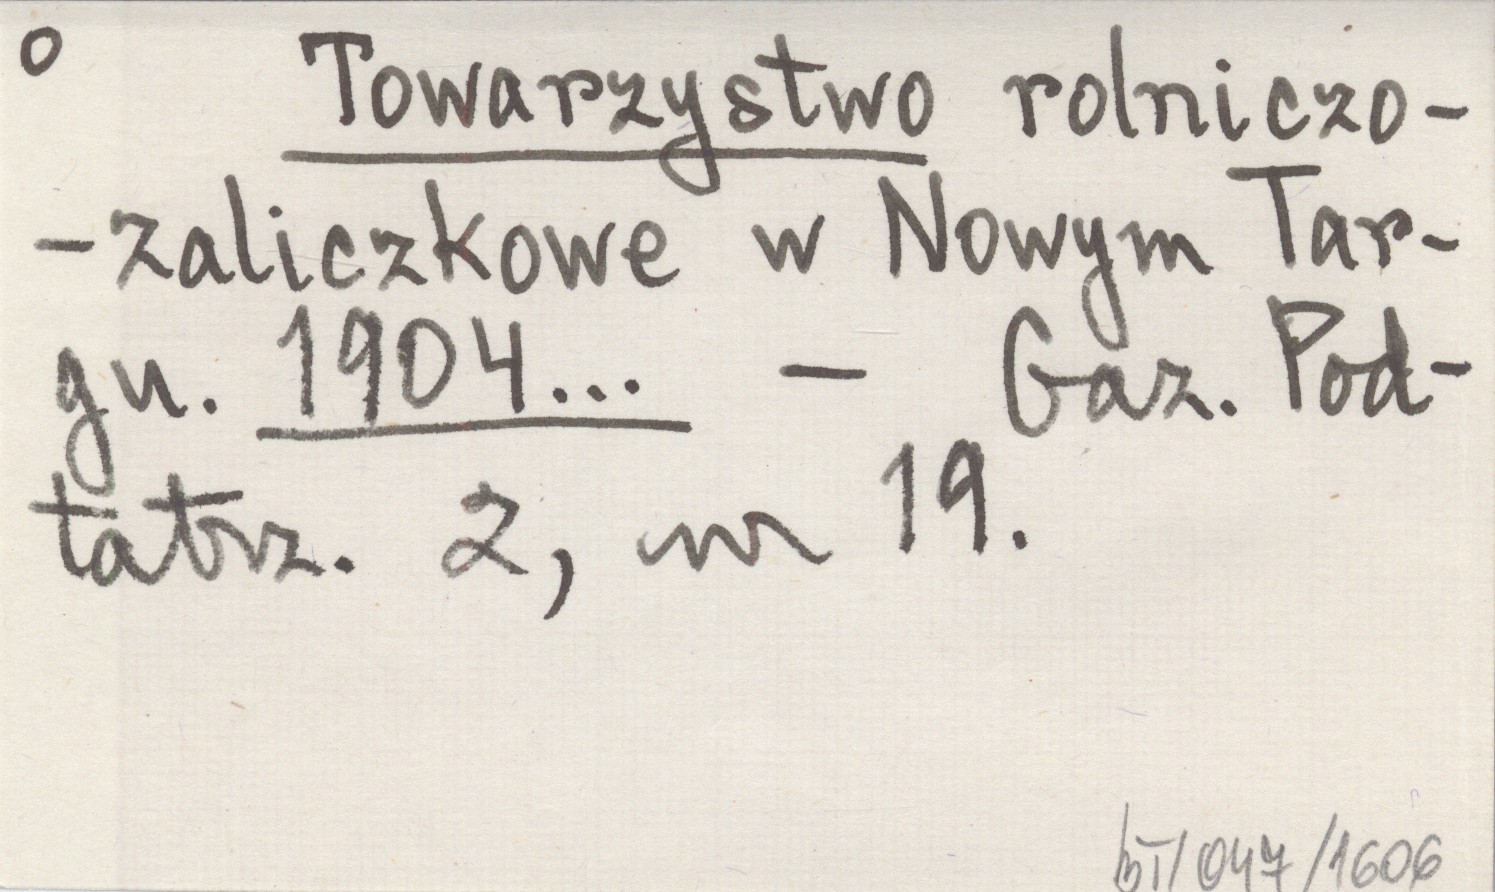 o Towarzystwo rolniczo-
-zaliczkowe w Nowym Tar-
gu. 1904... – Gaz. Pod-
tatrz. 2, nr 19.
BT/047/1606